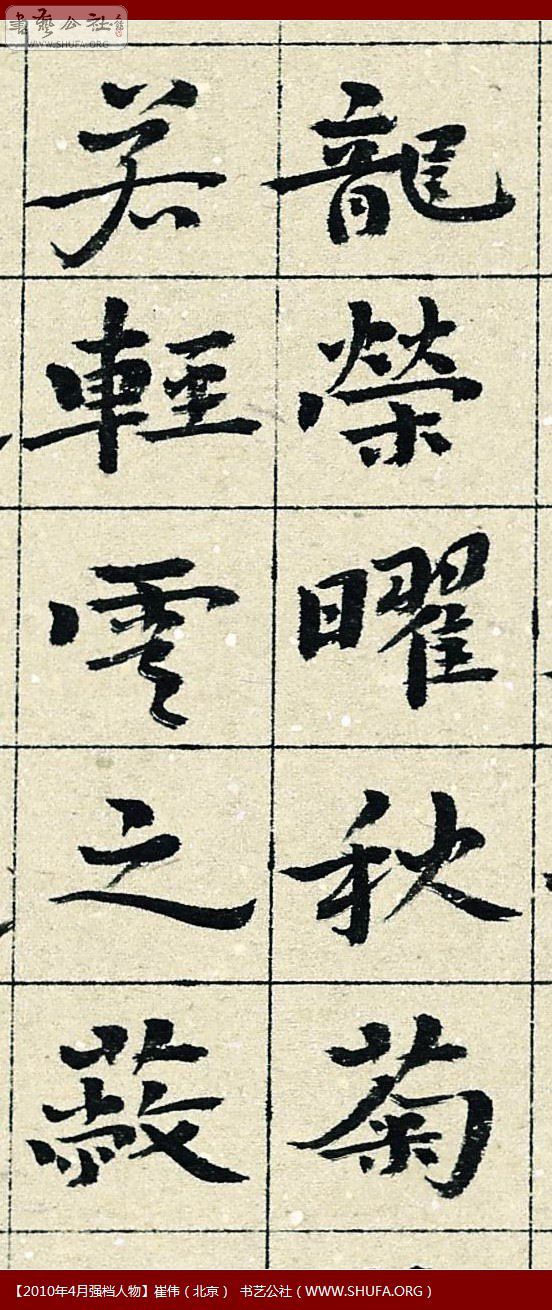 书艺公社
WWW.SHUFA.ORG
龍榮曜秋菊
若輕雲之蔽
【2010年4月强档人物】崔伟（北京） 书艺公社（WWW.SHUFA.ORG）